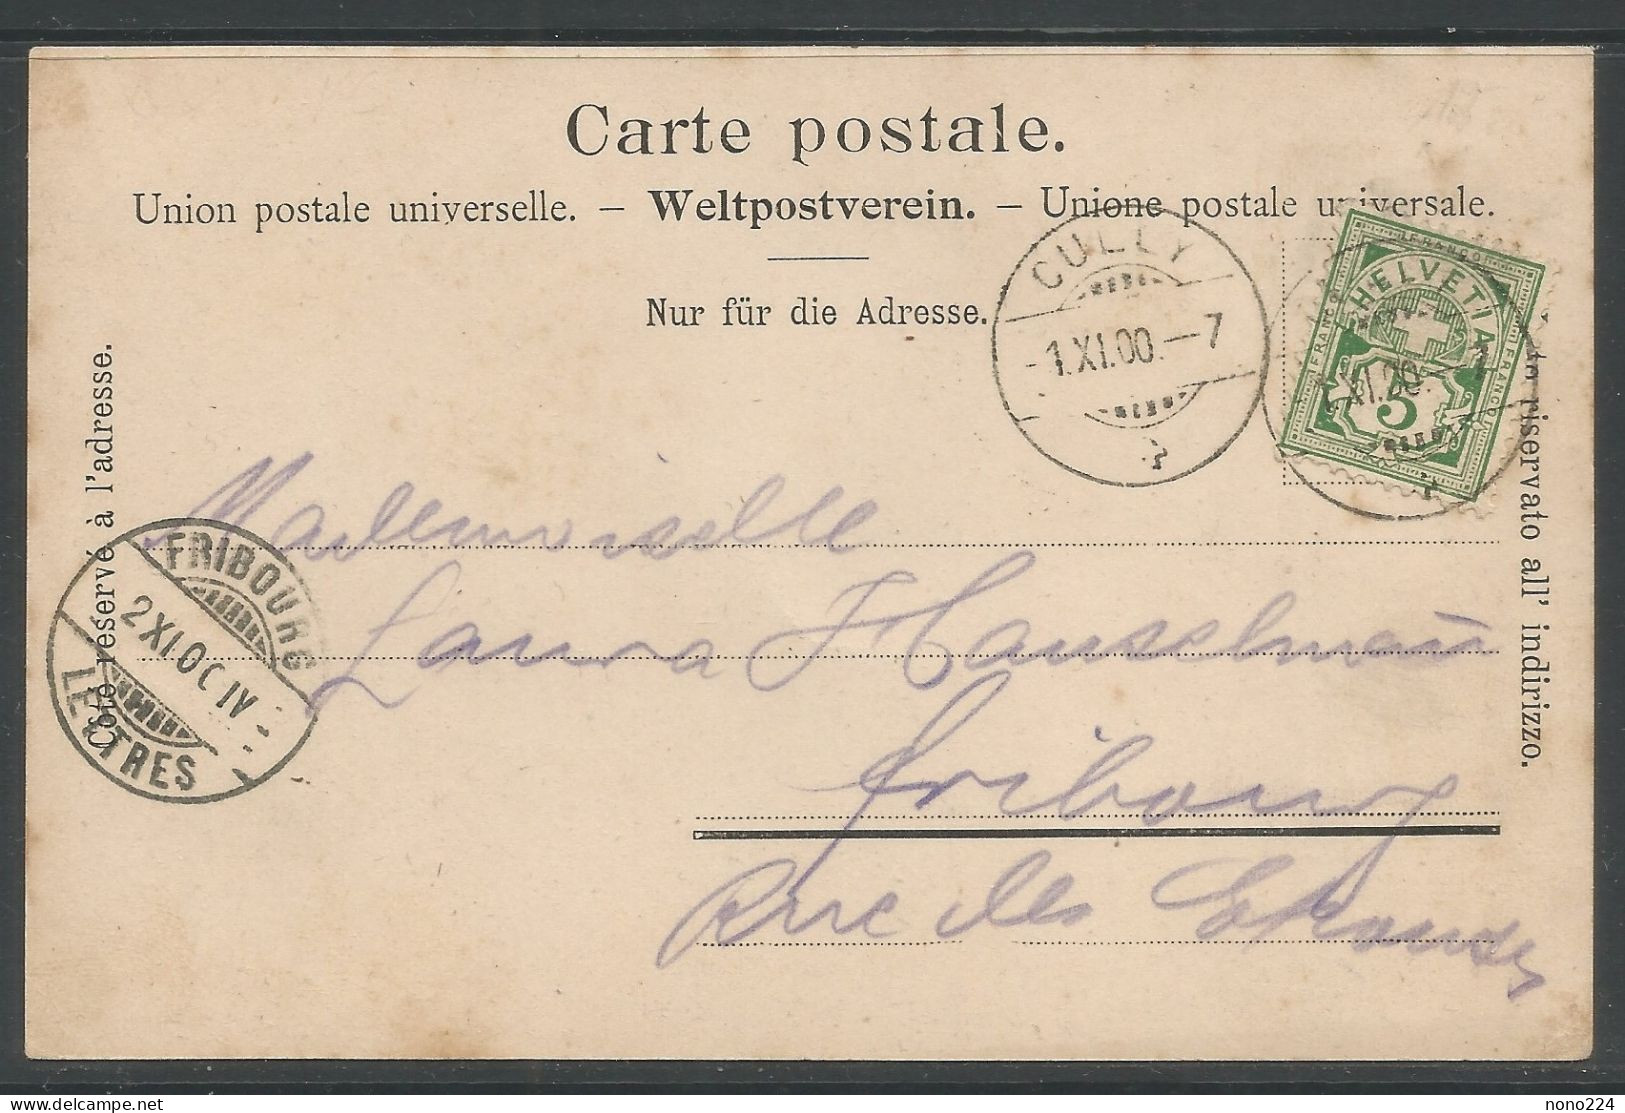 Carte postale.
Union postale universelle. — Weltpostverein. — Unione postale universale.
Nur für die Adresse.
Côté réservé à l'adresse.
riservato all' indirizzo.
CULLY
-1.XI.00.—7
FRANCO
HELVETIA
FRANCO
FRANCO
5
XI.00.
7
FRIBOURG
2 XI.00 IV
LETTRES
Mademoiselle
Laura
Fribourg
Rue des
nono224